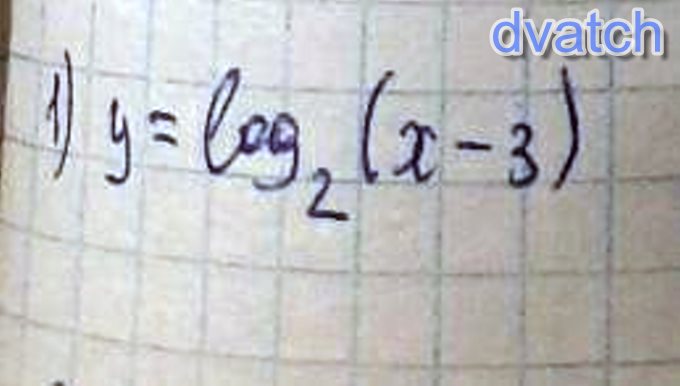 dvatch
1) y = log₂ (x - 3)